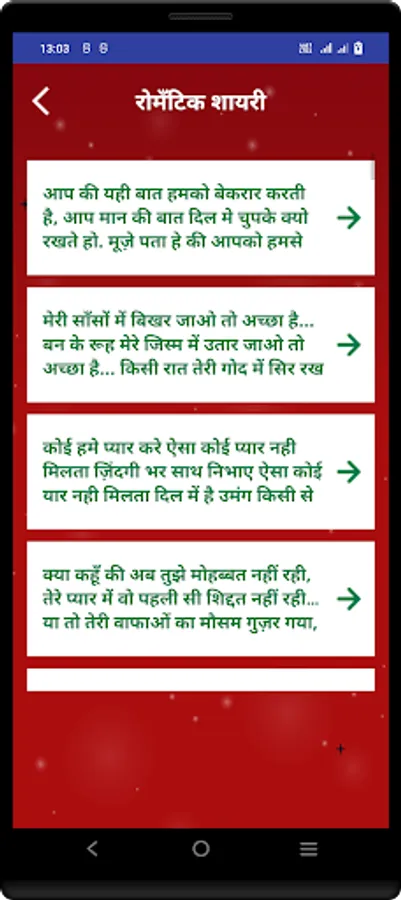 13:03
रोमैंटिक शायरी
आप की यही बात हमको बेकरार करती
है, आप मान की बात दिल मे चुपके क्यो
रखते हो. मूज़े पता हे की आपको हमसे
मेरी साँसों में बिखर जाओ तो अच्छा है...
बन के रूह मेरे जिस्म में उतार जाओ तो
अच्छा है... किसी रात तेरी गोद में सिर रख
कोई हमे प्यार करे ऐसा कोई प्यार नही
मिलता ज़िंदगी भर साथ निभाए ऐसा कोई
यार नही मिलता दिल में है उमंग किसी से
क्या कहूँ की अब तुझे मोहब्बत नहीं रही,
तेरे प्यार में वो पहली सी शिद्दत नहीं रही...
या तो तेरी वाफाओं का मौसम गुज़र गया,